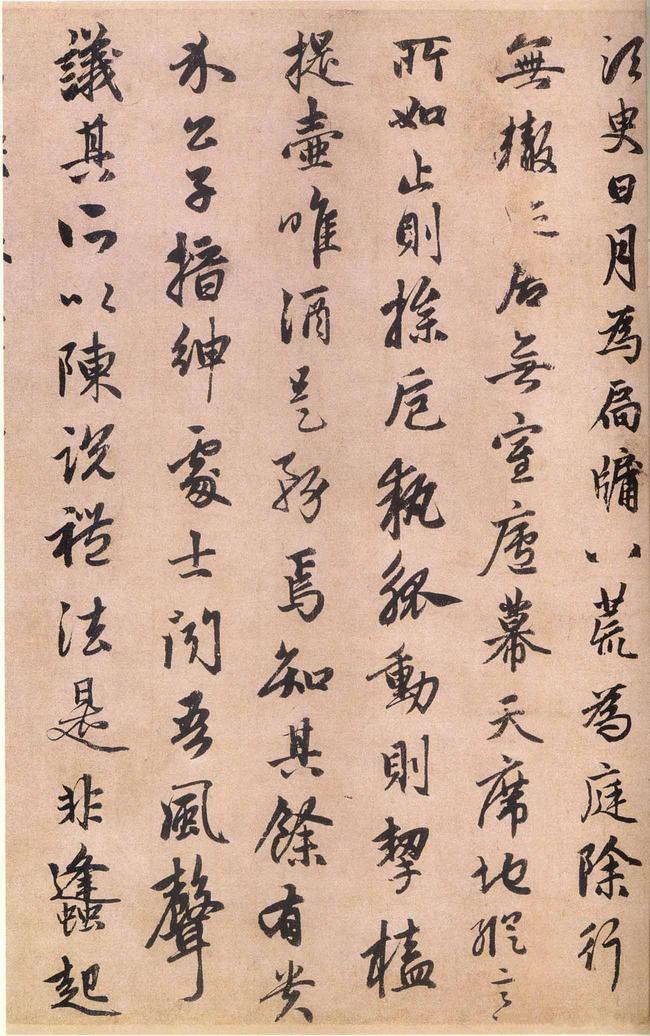 須臾日月為扃牖八荒為庭除行
無轍迹居無室廬幕天席地縱意
所如止則操卮執觚動則挈榼
提壺唯酒是務焉知其餘有貴
介公子搢紳處士聞吾風聲
議其所以陳說禮法是非蠭起